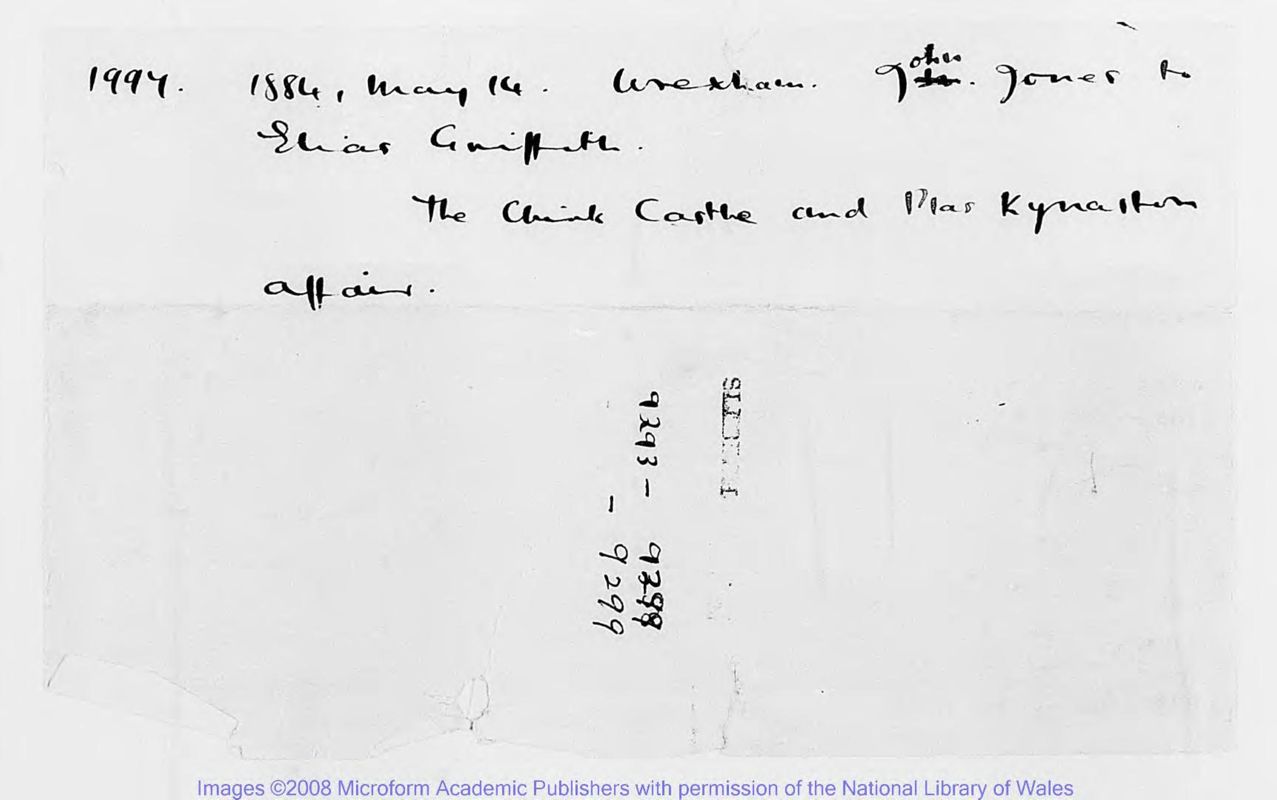 1994. 1884, May 14. Wrexham. John. Jones to
Elias Griffith.
The Chirk Castle and Plas Kynaston
affair.
9293 -
- 9299
Images ©2008 Microform Academic Publishers with permission of the National Library of Wales